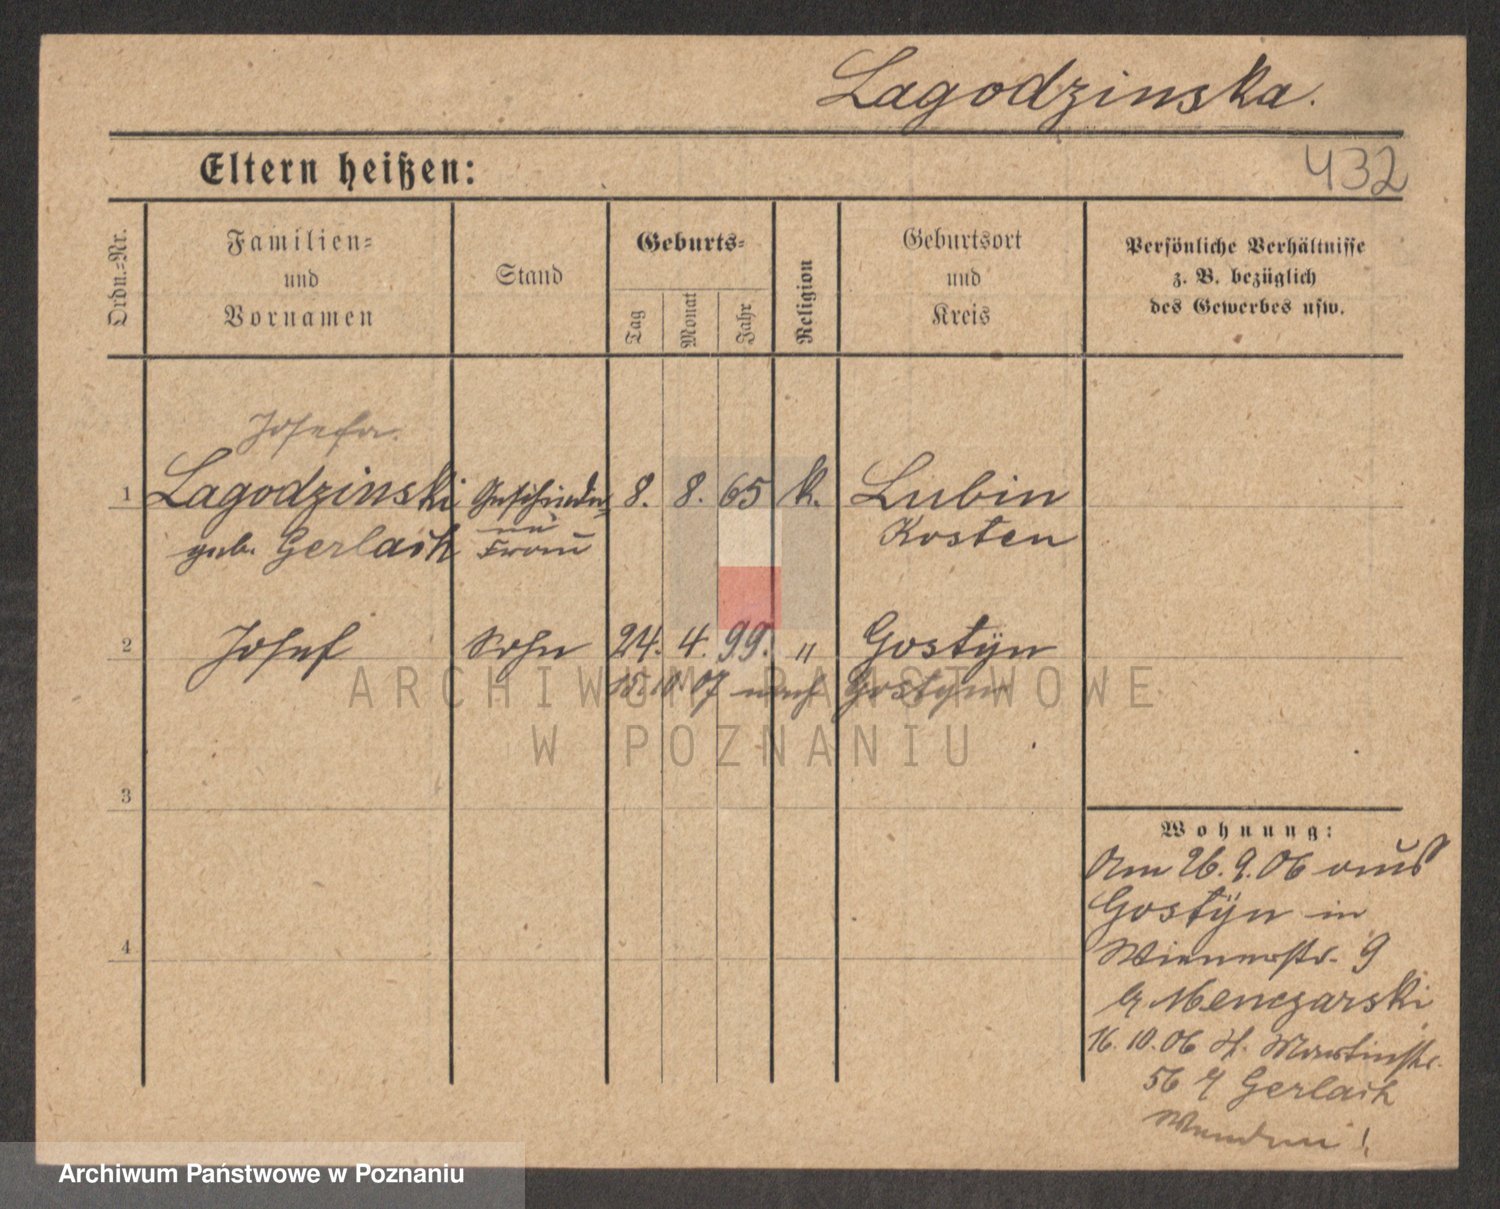 Lagodzinska.
432
Eltern heißen:
Ordn.-Nr.
Familien-
und
Vornamen
Stand
Geburts-
Tag
Monat
Jahr
Religion
Geburtsort
und
Kreis
Persönliche Verhältnisse
z. B. bezüglich
des Gewerbes usw.
Josefa.
1 Lagodzinski 8. 8. 65 k. Lubin
geb. Gerlach Frau Kosten
2 Josef Sohn 24. 4. 99. " Gostÿn
15. 10. 07 nach Gostyn
3
4
Wohnung:
Am 26.9.06 aus
Gostÿn in
Wienerstr. 9
Menczarski
16.10.06 Martinstr.
56 Gerlach
ARCHIWUM PAŃSTWOWE
W POZNANIU
Archiwum Państwowe w Poznaniu